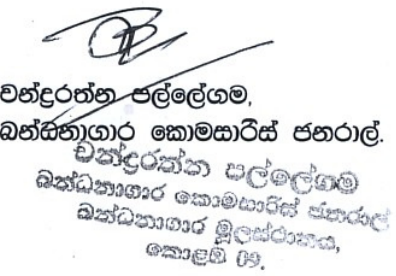 චන්ද්‍රරත්න පල්ලේගම,
බන්ධනාගාර කොමසාරිස් ජනරාල්.
චන්ද්‍රරත්න පල්ලේගම
බන්ධනාගාර කොමසාරිස් ජනරාල්
බන්ධනාගාර මූලස්ථානය,
කොළඹ 09.